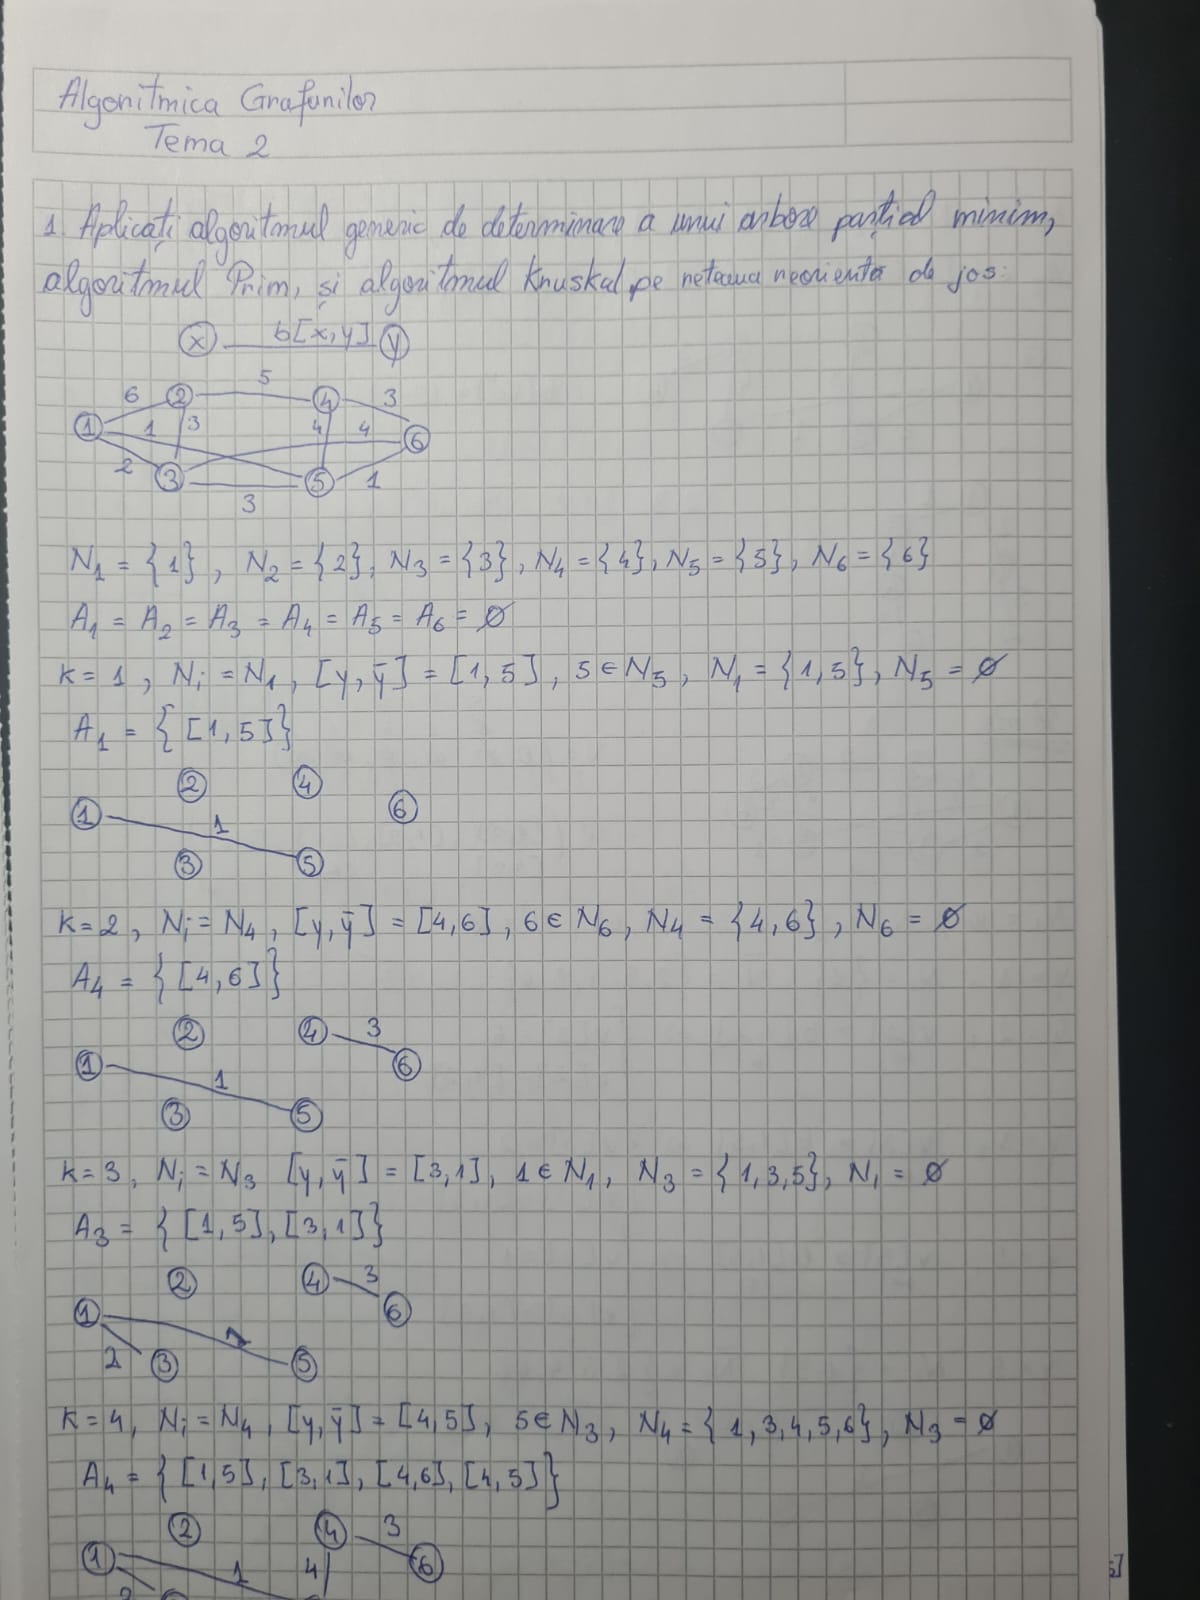 Algoritmica Grafurilor
Tema 2
1. Aplicați algoritmul generic de determinare a unui arbore parțial minim,
algoritmul Prim, și algoritmul Kruskal pe rețeaua neorientă de jos:
x b[x,y] y
6 2 5 4 3
1 1 3 4 4 6
2 3 5 1
3
N₁ = {1}, N₂ = {2}, N₃ = {3}, N₄ = {4}, N₅ = {5}, N₆ = {6}
A₁ = A₂ = A₃ = A₄ = A₅ = A₆ = ∅
k=1, Nᵢ = N₁, [y, ȳ] = [1,5], 5 ∈ N₅, N₁ = {1,5}, N₅ = ∅
A₁ = {[1,5]}
2 4
1 1 6
3 5
k=2, Nᵢ = N₄, [y, ȳ] = [4,6], 6 ∈ N₆, N₄ = {4,6}, N₆ = ∅
A₄ = {[4,6]}
2 4 3
1 1 6
3 5
k=3, Nᵢ = N₃ [y, ȳ] = [3,1], 1 ∈ N₁, N₃ = {1,3,5}, N₁ = ∅
A₃ = {[1,5],[3,1]}
2 4 3
1 1 6
2 3 5
k=4, Nᵢ = N₄, [y, ȳ] = [4,5], 5 ∈ N₃, N₄ = {1,3,4,5,6}, N₃ = ∅
A₄ = {[1,5], [3,1], [4,6], [4,5]}
2 4 3
1 1 4 6